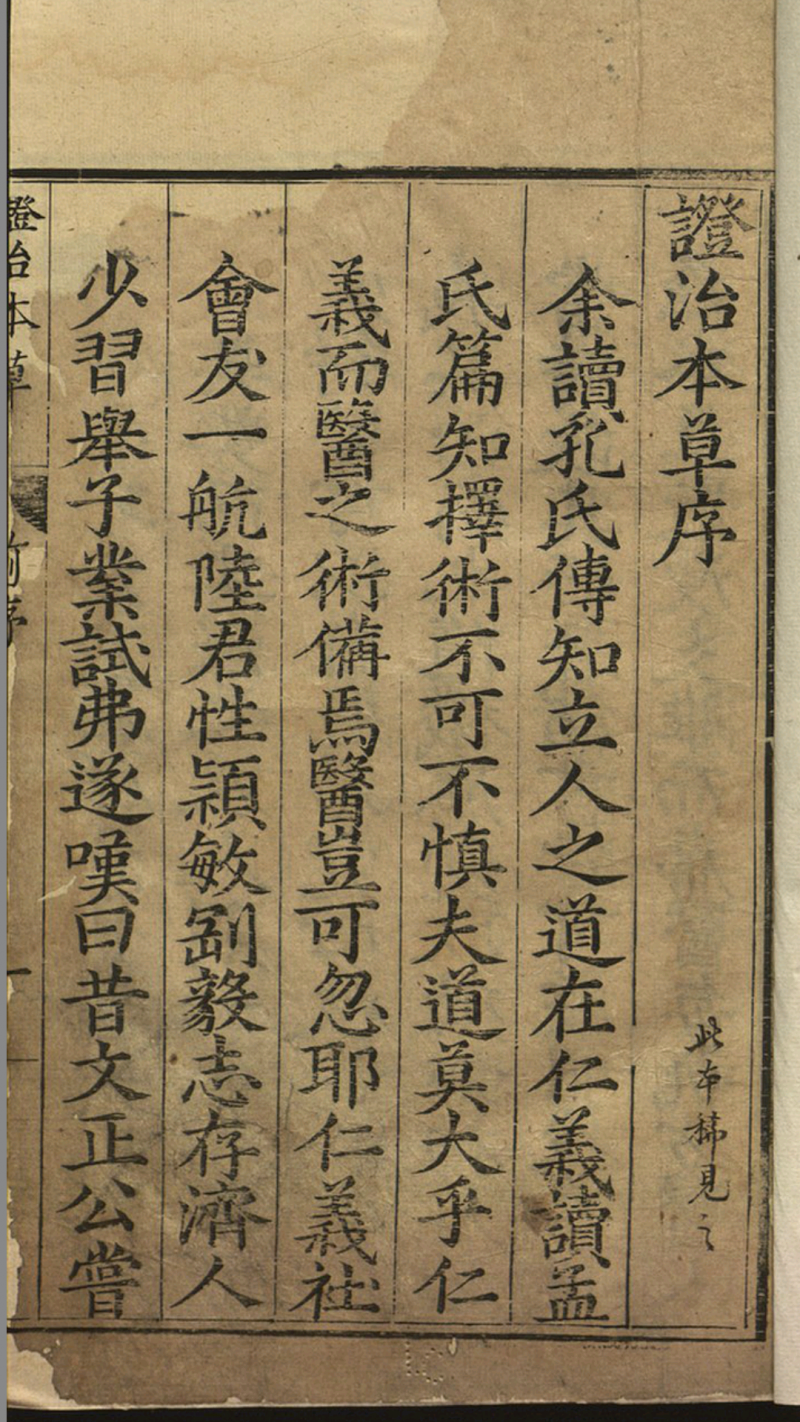 證治本草序
此本稀見之
余讀孔氏傳知立人之道在仁義讀孟
氏篇知擇術不可不慎夫道莫大乎仁
義而醫之術備焉醫豈可忽耶仁義社
會友一航陸君性頴敏剛毅志存濟人
少習舉子業試弗遂嘆曰昔文正公嘗
證治本草
前序
一